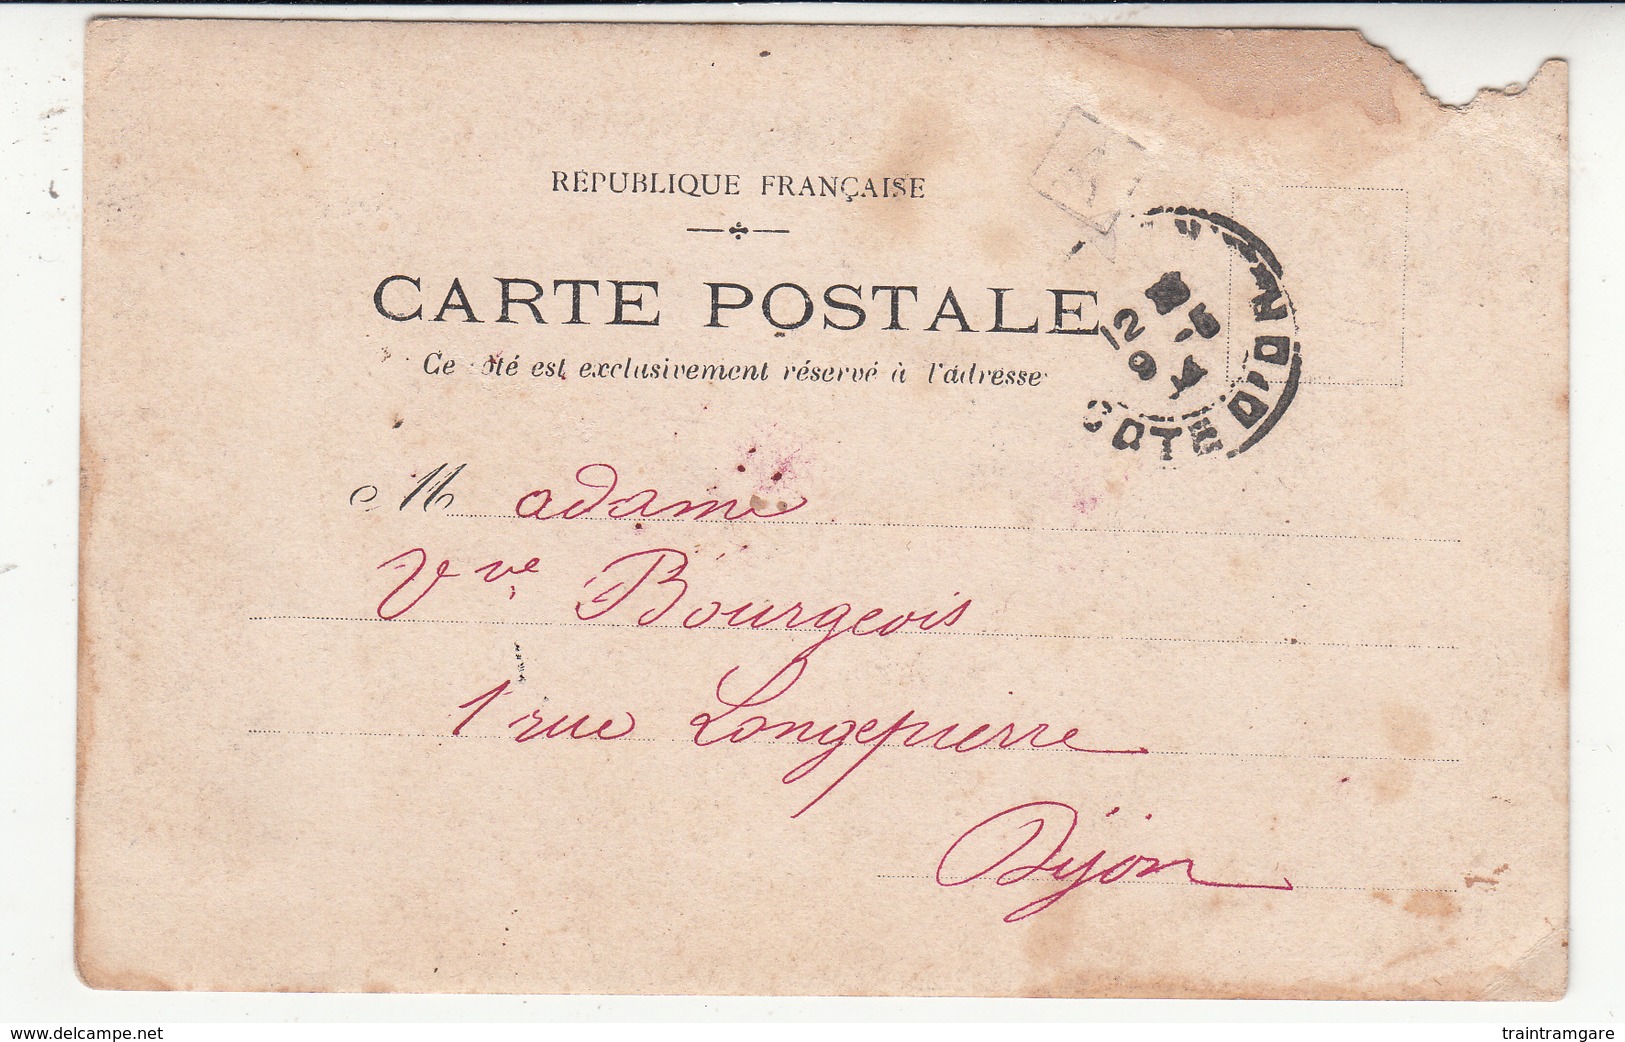 RÉPUBLIQUE FRANÇAISE
CARTE POSTALE
Ce côté est exclusivement réservé à l'adresse
A
DIJON
12
5
9
COTE
M adame
Vve Bourgeois
1 rue Longepierre
Dijon
www.delcampe.net
traintramgare